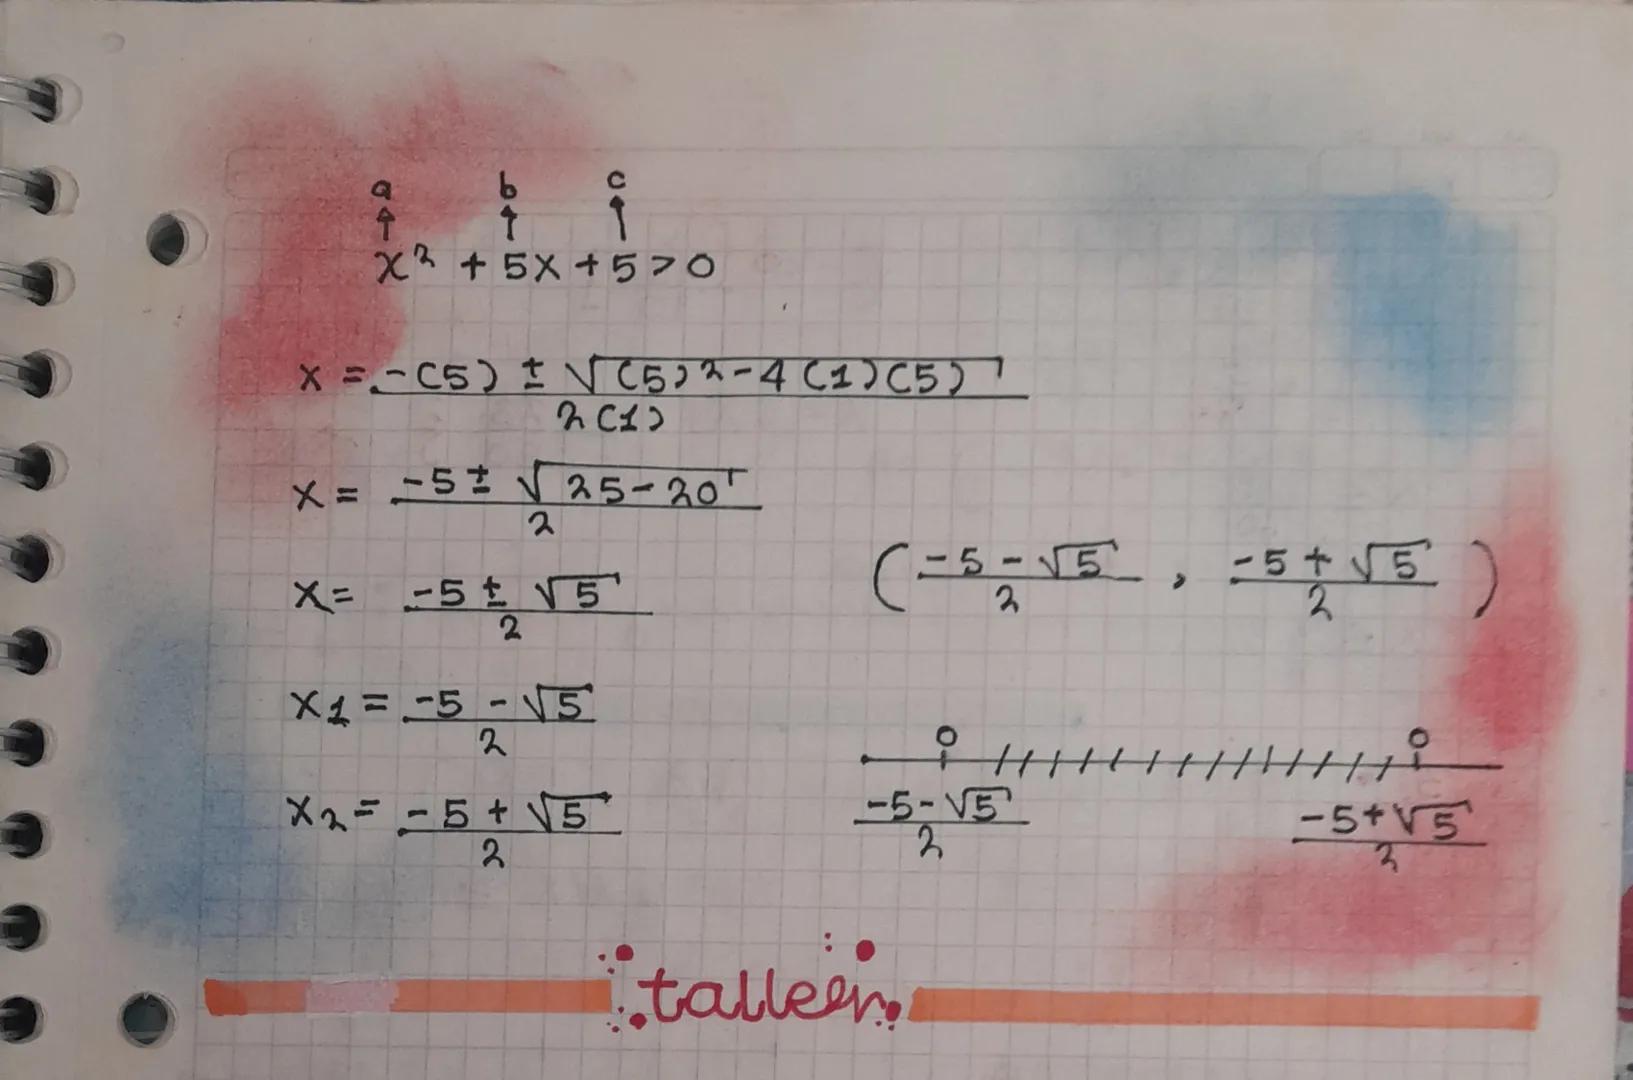 a b c
x² + 5x + 5 > 0
x = -(5) ± √(5)2-4(1)(5)
2(1)
x = -5 ± √25-20
2
x = -5 ± √5
2
x1 = -5 - √5
2
x2 = -5 + √5
2
( -5 - √5 / 2 , -5 + √5 / 2 )
-5-√5
2
-5+√5
2
taller